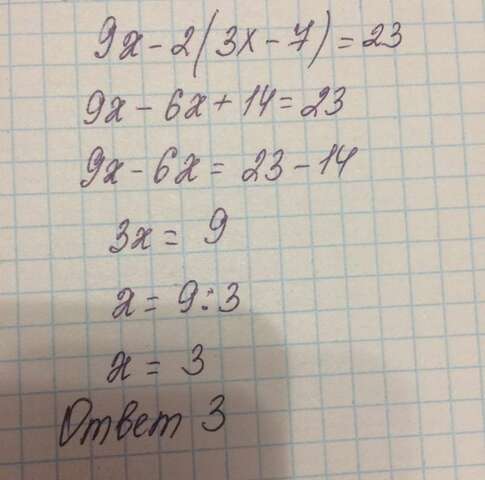 9x - 2(3x - 7) = 23
9x - 6x + 14 = 23
9x - 6x = 23 - 14
3x = 9
x = 9 : 3
x = 3
Ответ 3